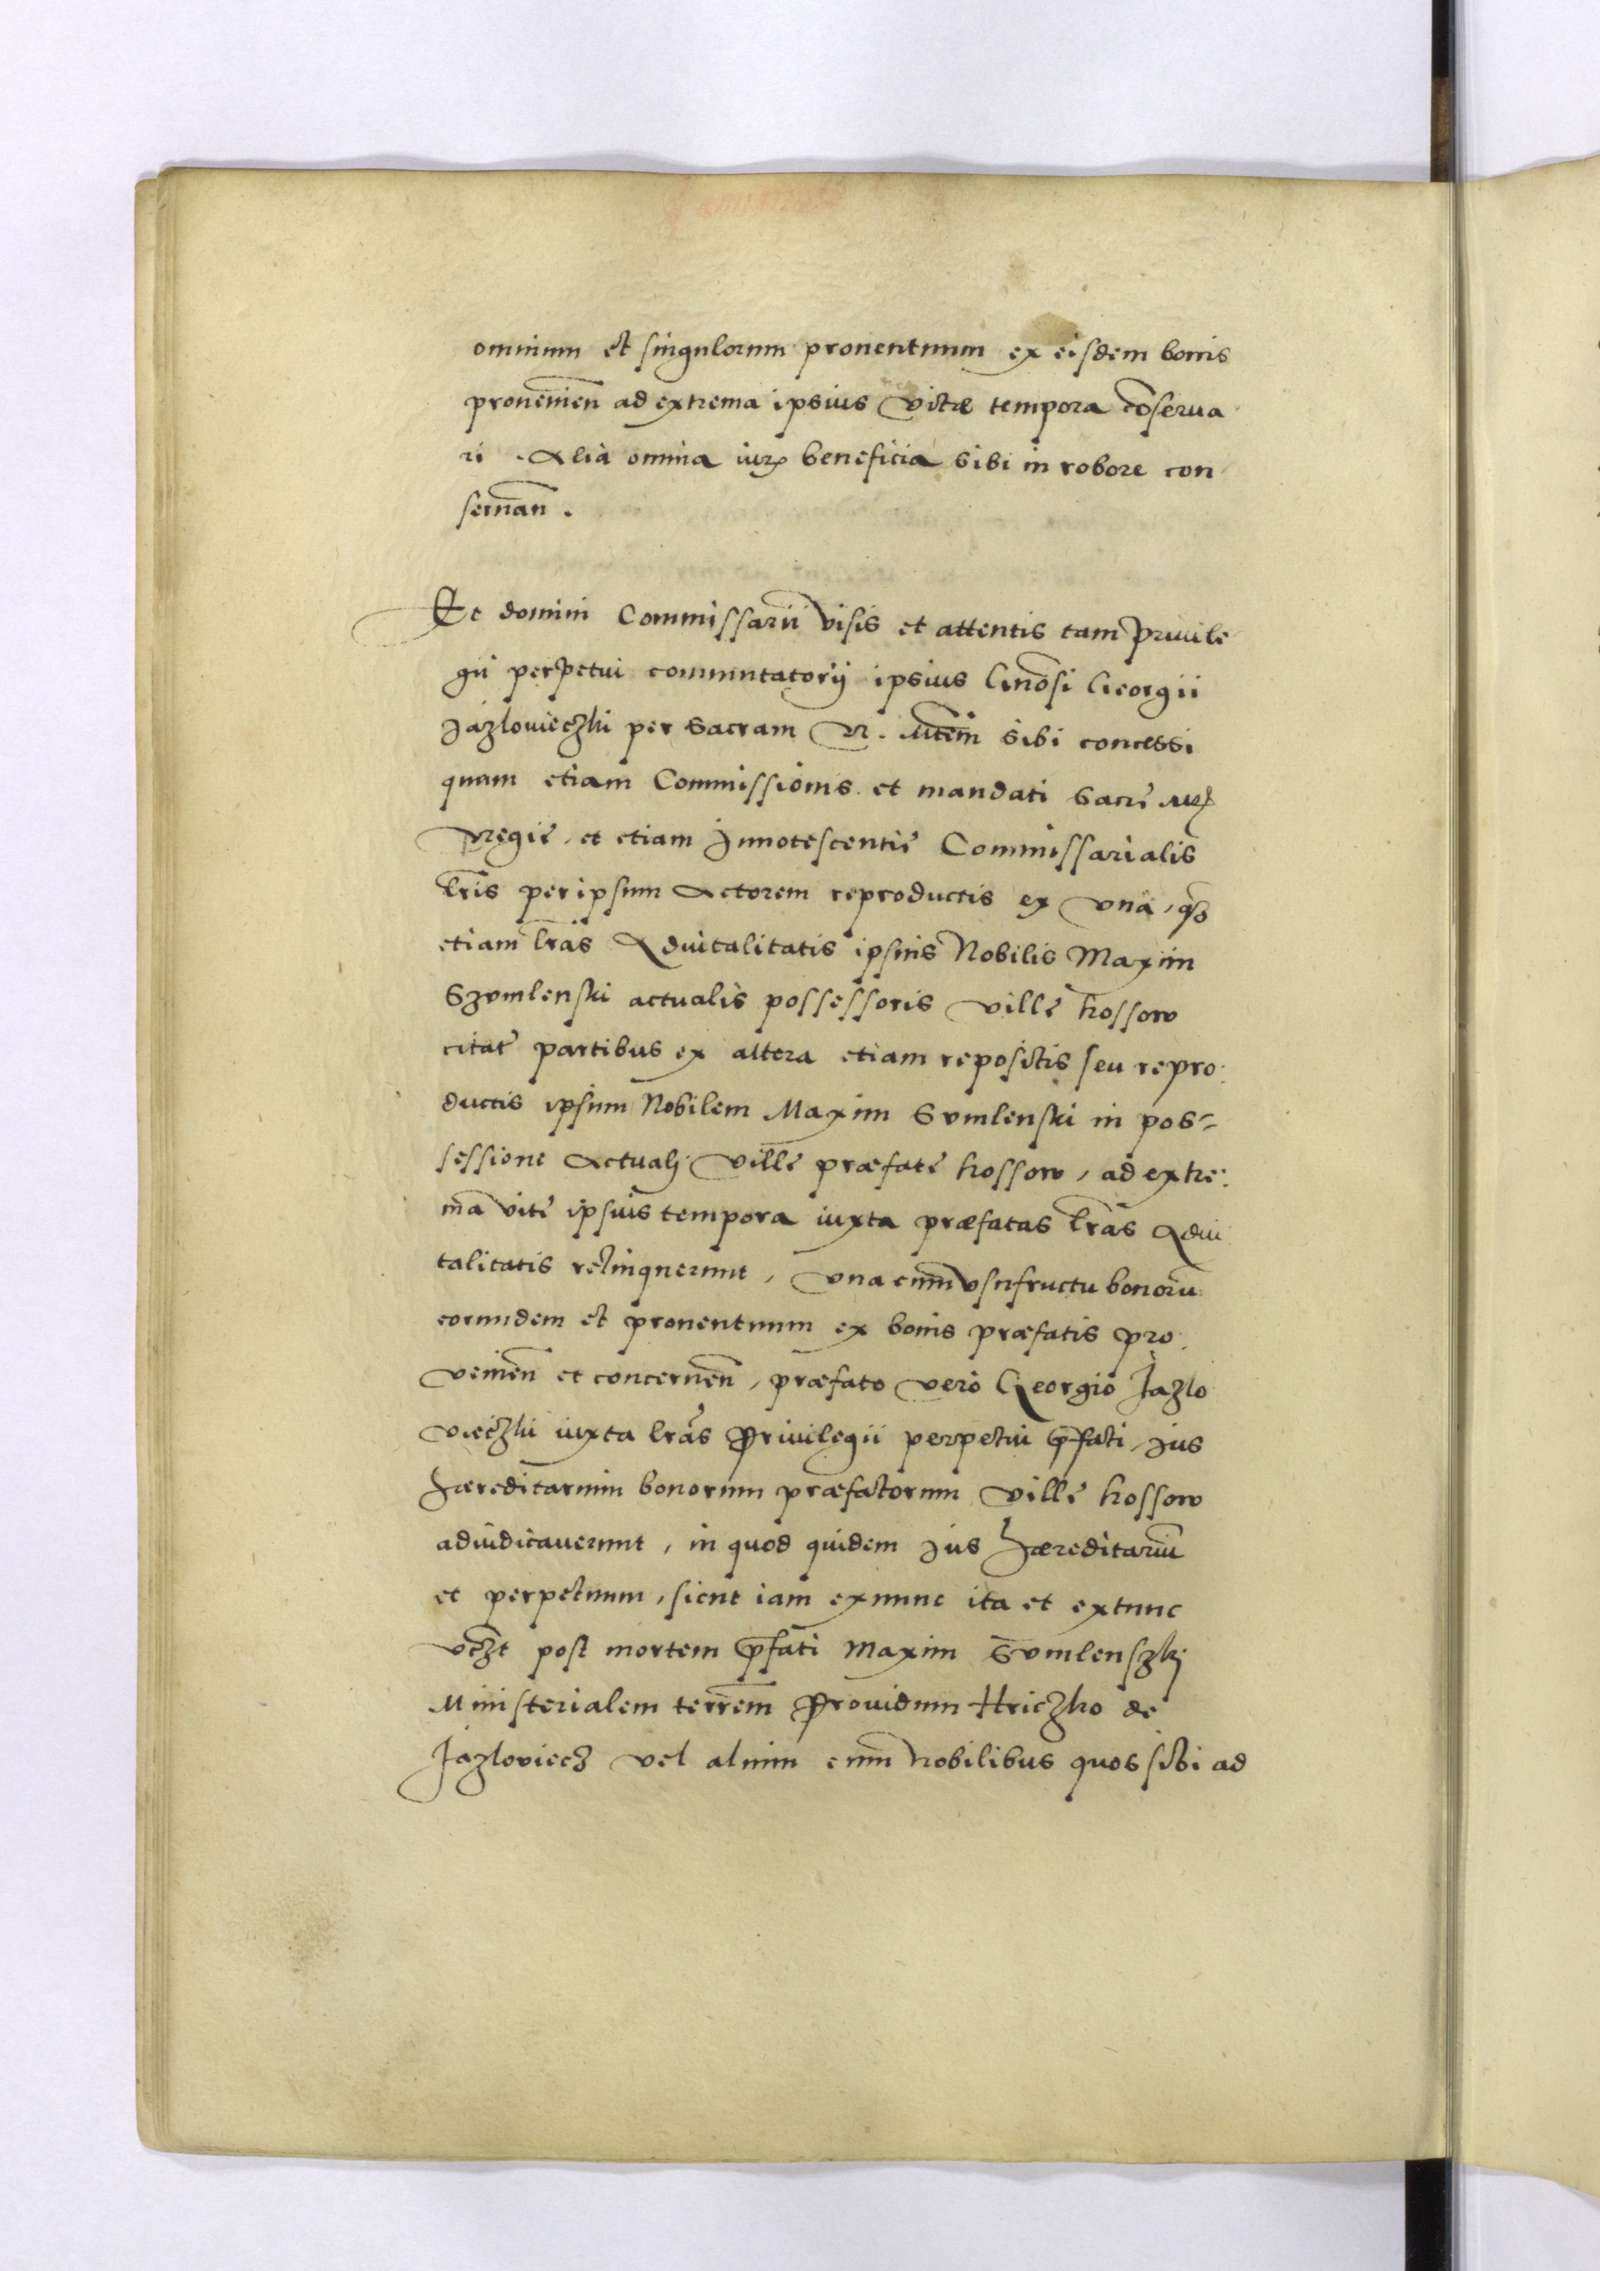 omnium et singulorum prouentuum ex eisdem bonis
prouenien̄ ad extrema ipsius vitæ tempora cōserua
ri . Alia omnia iurꝫ beneficia sibi in robore con
seruan̄ .
Et domini Commissarii visis et attentis tam Priuile
gii perpetui commutatorij ipsius Gn̄osi Georgii
Jazlovieczki per Sacram R. Mt̄em sibi concessi
quam etiam Commissionis et mandati Sacrę Mtꝭ
Regię, et etiam Innotescentię Commissarialis
l̄ris per ipsum Actorem reproductis ex vna,
etiam l̄ras Aduitalitatis ipsius Nobilis Maxim
Szvmlenski actualis possessoris villę Kossow
citatę partibus ex altera etiam repositis seu repro
ductis ipsum Nobilem Maxim Svmlenski in pos=
sessione Actualj villę præfatę Kossow, ad extre:
ma vitę ipsius tempora iuxta præfatas l̄ras Adui
talitatis relinquerunt, vna cum vsufructu bonorū
eorundem et prouentuum ex bonis præfatis pro
venien̄ et concernen̄, præfato vero Georgio Jazlo
vieczki iuxta l̄ras Priuilegii perpetui p̄fati, Jus
Hæreditarium bonorum præfatorum villę Kossow
adiudicauerunt, in quod quidem Jus Hæreditariū
et perpetuum, sicut iam exnunc ita et extunc
vcz̄t post mortem p̄fati Maxim Svmlenszkj
Ministerialem terrēm Prouidum Hriczko de
Jazloviecz vel alium cum Nobilibus quos sibi ad